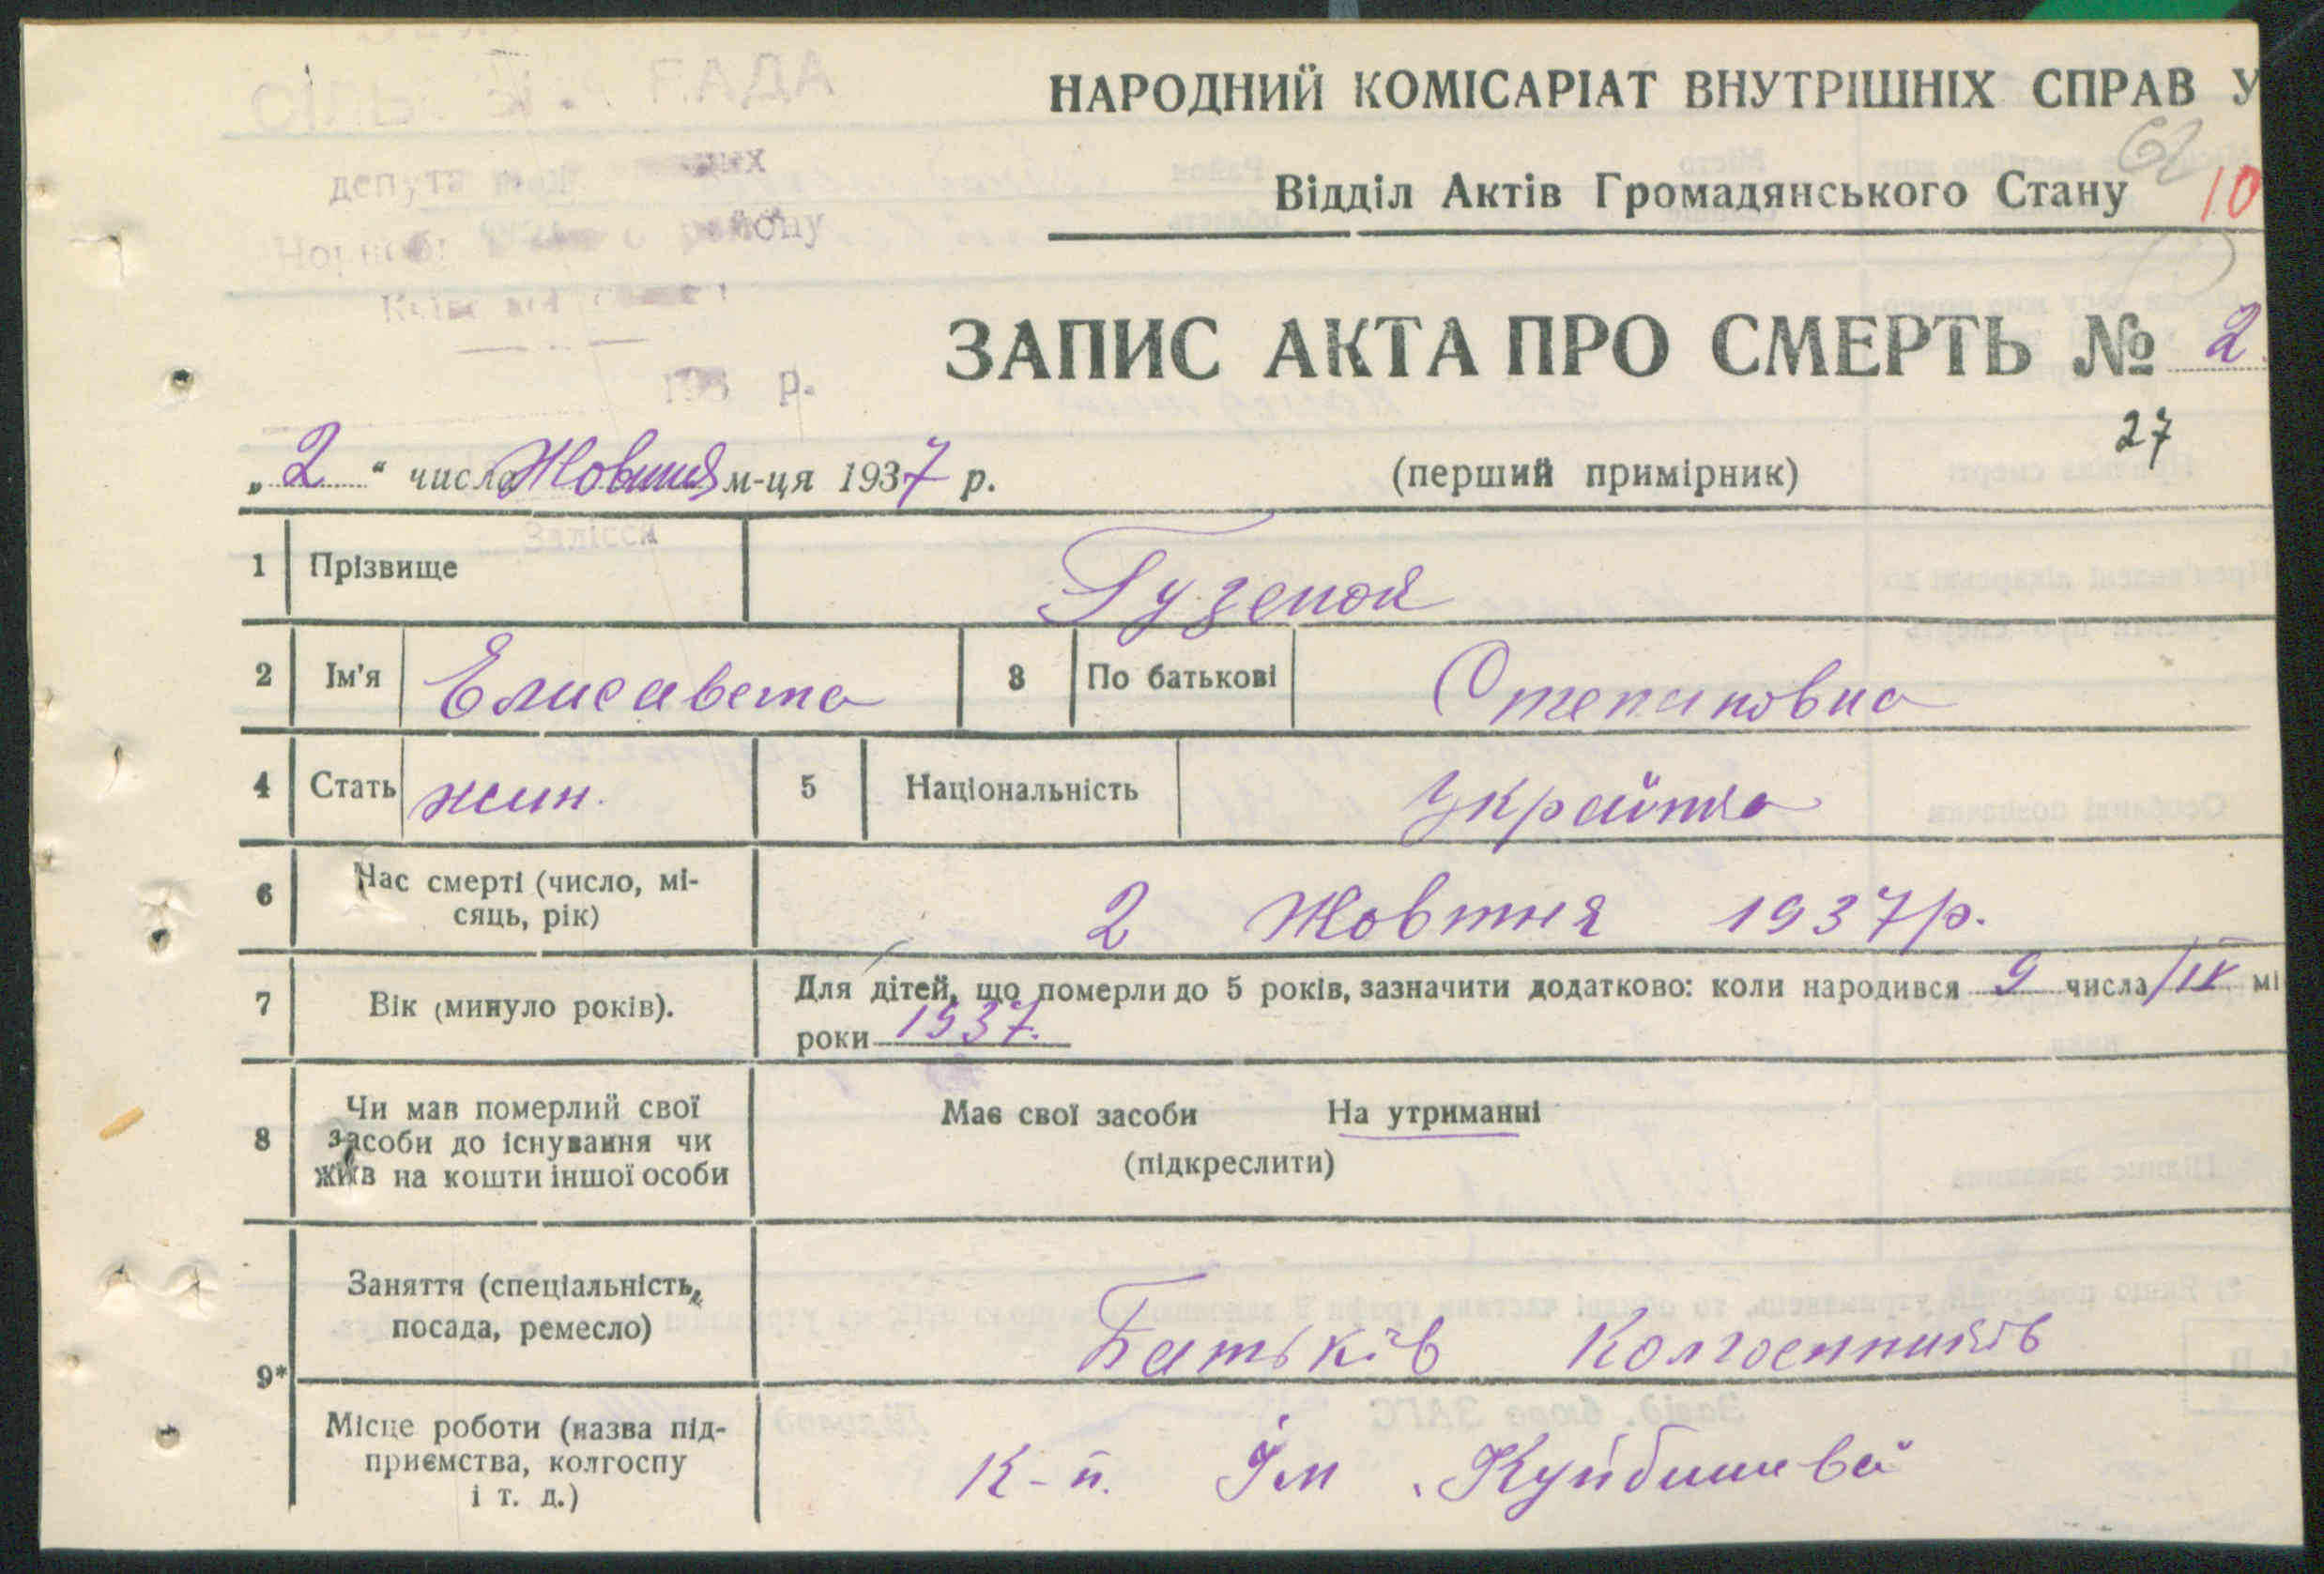 РАДА
НАРОДНИЙ КОМІСАРІАТ ВНУТРІШНІХ СПРАВ У
62
Відділ Актів Громадянського Стану
10
району
ЗАПИС АКТА ПРО СМЕРТЬ № 2
193 р.
27
„2“ числа Жовтня м-ця 1937 р.
(перший примірник)
Залісся
1 Прізвище
2 Ім'я Елисавета 3 По батькові Степановна
4 Стать жин. 5 Національність Україн
6 Час смерті (число, мі-
сяць, рік)
2 Жовтня 1937 р.
7 Вік (минуло років).
Для дітей, що померли до 5 років, зазначити додатково: коли народився 9 числа IX мі
роки 1937.
8 Чи мав померлий свої
засоби до існування чи
жив на кошти іншої особи
Має свої засоби На утриманні
(підкреслити)
9* Заняття (спеціальність,
посада, ремесло)
Батьків Колгоспників
Місце роботи (назва під-
приємства, колгоспу
і т. д.)
К-п. Ім Куйбишева